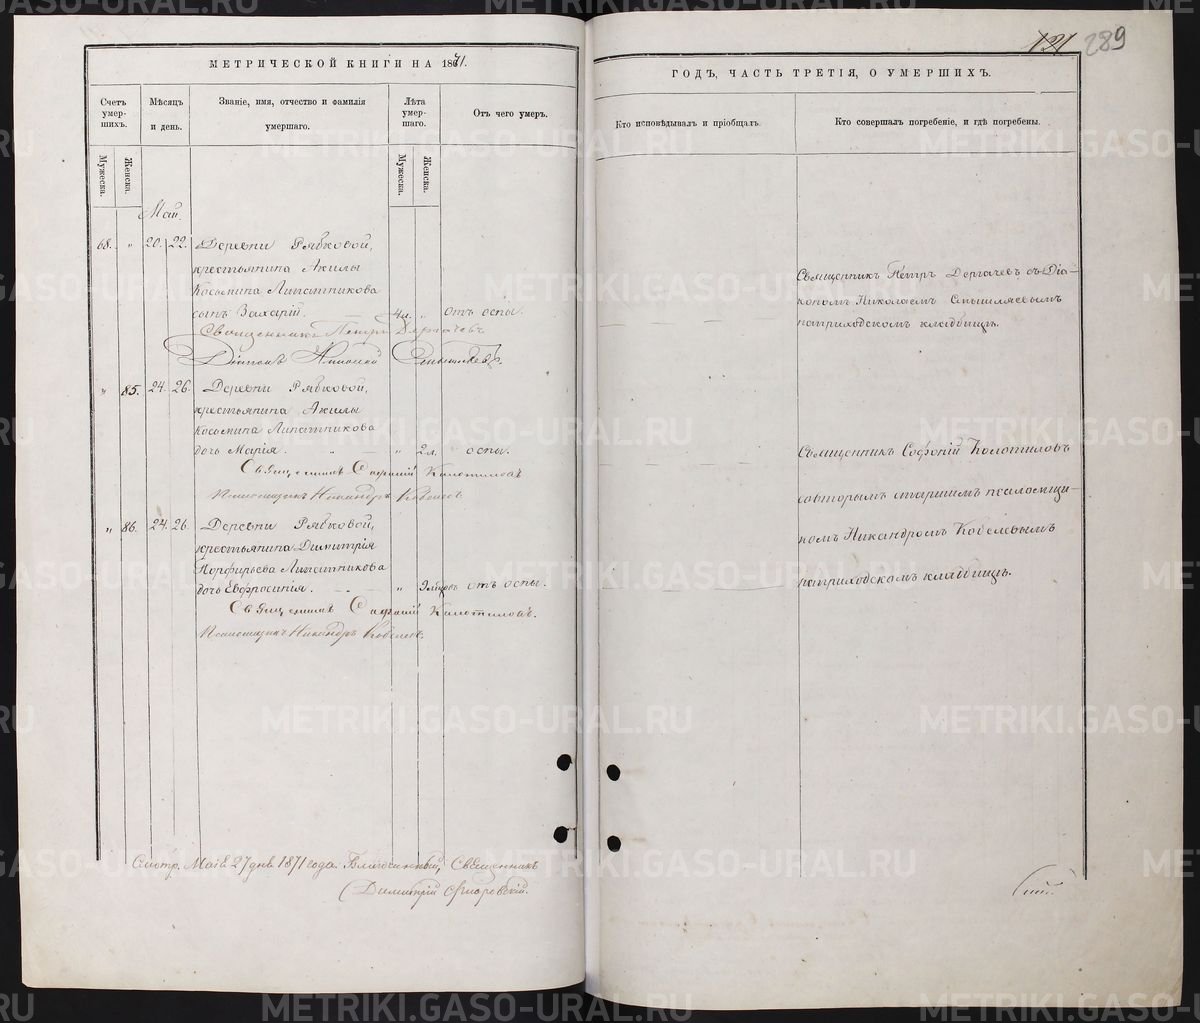 121 289
МЕТРИЧЕСКОЙ КНИГИ НА 1871.
ГОДЪ, ЧАСТЬ ТРЕТІЯ, О УМЕРШИХЪ.
Счетъ умер-шихъ.
Мѣсяцъ и день.
Званіе, имя, отчество и фамилія умершаго.
Лѣта умер-шаго.
Отъ чего умеръ.
Кто исповѣдывалъ и пріобщалъ.
Кто совершалъ погребеніе, и гдѣ погребены.
Мужеска.
Женска.
Мужеска.
Женска.
Май.
68. " 20. 22. Деревни Рябковой,
крестьянина Акилы
Косьмина Липатникова
сынъ Захарій. 4 л. " отъ оспы.
Священникъ Петръ Дергачевъ
Діаконъ Николай
Священникъ Петръ Дергачевъ съ Діа-
кономъ Николаемъ Смышляевымъ
на приходскомъ кладбищѣ.
" 85. 24. 26. Деревни Рябковой,
крестьянина Акилы
Косьмина Липатникова
дочь Марія. " 2 л. оспы.
Священникъ Софоній Колотиловъ
Псаломщикъ Никандръ Кобелевъ
Священникъ Софоній Колотиловъ
со вторымъ старшимъ псаломщи-
комъ Никандромъ Кобелевымъ
на приходскомъ кладбищѣ.
" 86. 24. 26. Деревни Рябковой,
крестьянина Димитрія
Порфирьева Липатникова
дочь Евфросинія. " отъ оспы.
Священникъ Софоній Колотиловъ.
Псаломщикъ Никандръ Кобелевъ.
Смотр. Маія 27 дня 1871 года. Благочинный, Священникъ
Димитрій
METRIKI.GASO-URAL.RU